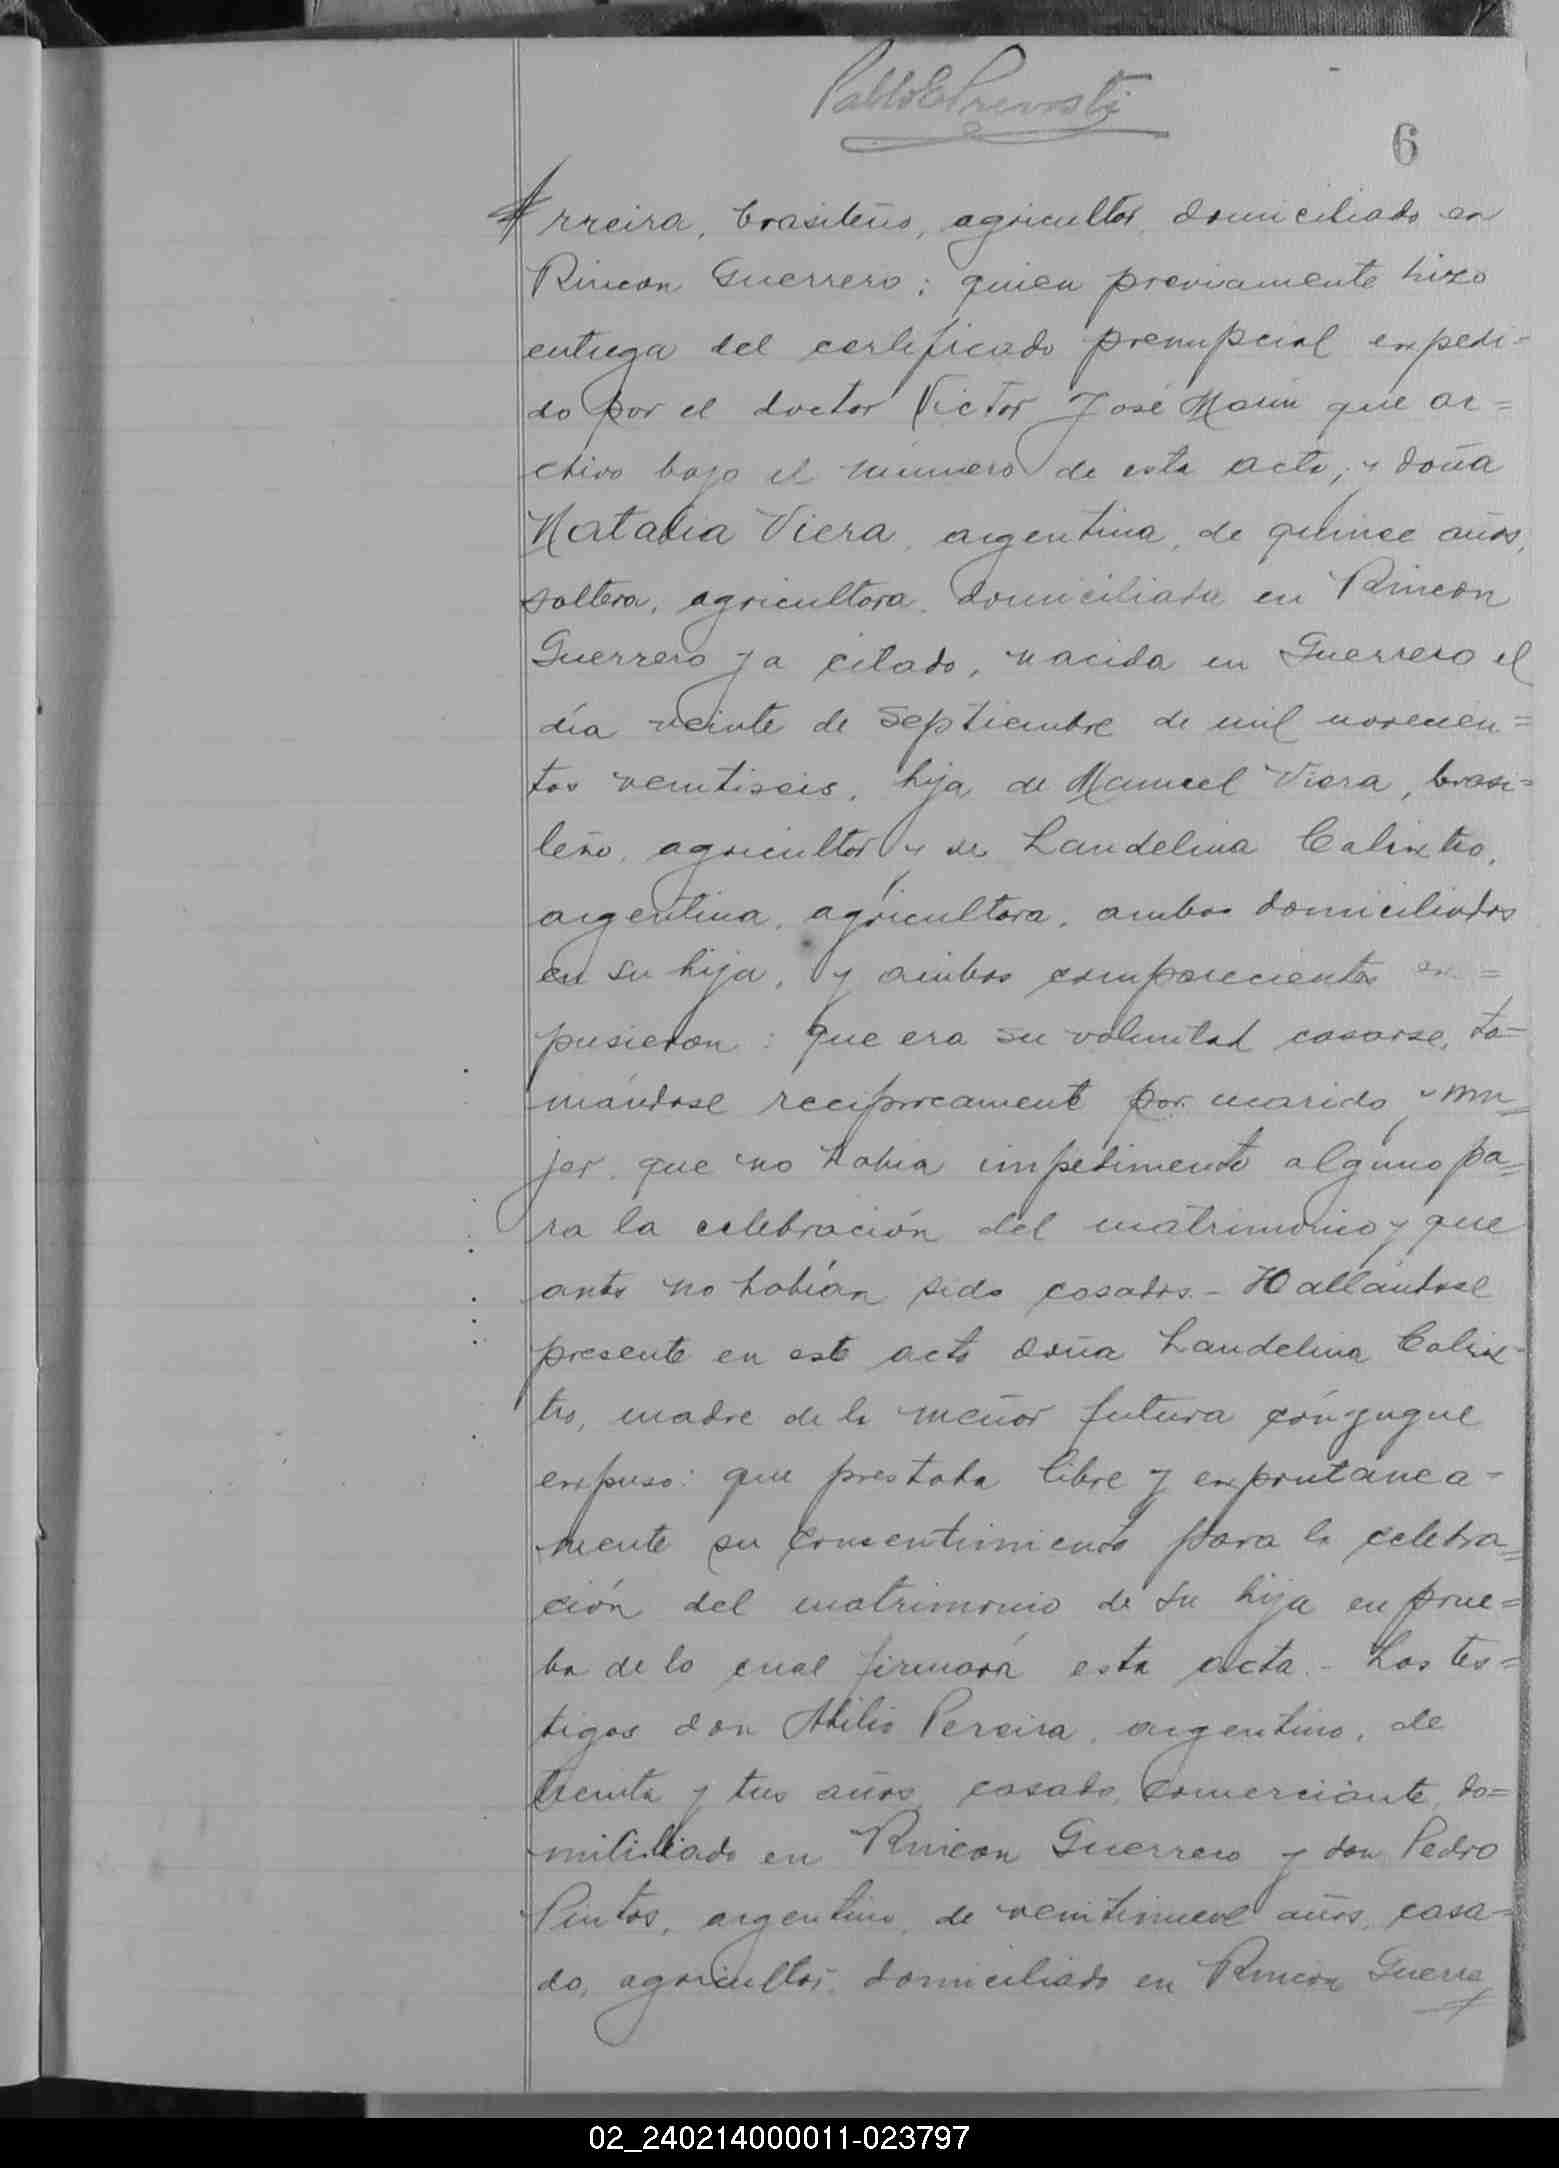 Pablo E Prevosti
6
rreira, brasileño, agricultor, domiciliado en
Rincon Guerrero; quien previamente hizo
entrega del certificado prenupcial expedi=
do por el doctor Victor José Marin que ar=
chivo bajo el número de esta acta; y doña
Natalia Viera, argentina, de quince años,
soltera, agricultora, domiciliada en Rincon
Guerrero ya citado, nacida en Guerrero el
día veinte de Septiembre de mil novecien=
tos veintiseis, hija de Manuel Viera, brasi=
leño, agricultor y de Landelina Calixtro,
argentina, agricultora, ambos domiciliados
en su hija, y ambos comparecientes ex=
pusieron: que era su voluntad casarse, to=
mándose reciprocamente por marido y mu=
jer, que no habia impedimento alguno pa=
ra la celebración del matrimonio y que
antes no habían sido casados.- Hallándose
presente en este acto doña Landelina Calix-
tro, madre de la menor futura cónyugue
expuso: que prestaba libre y expontanea-
mente su consentimiento para la celebra=
ción del matrimonio de su hija en prue=
ba de lo cual firmará esta acta.- Los tes=
tigos don Atilio Pereira, argentino, de
treinta y tres años, casado, comerciante, do=
miliciado en Rincon Guerrero y don Pedro
Pintos, argentino, de veintinueve años, casa=
do, agricultor, domiciliado en Rincon Guerre
02_240214000011-023797